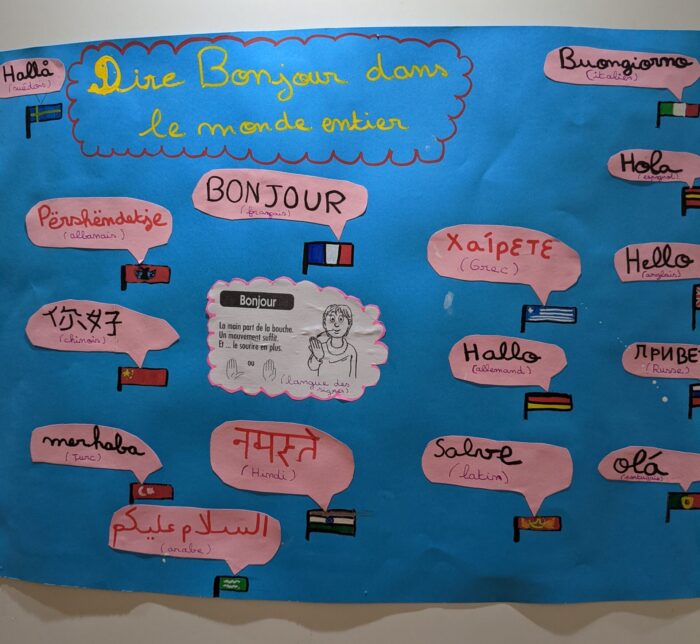 Dire Bonjour dans
le monde entier
Hallå
(suédois)
Buongiorno
(italien)
Hola
(espagnol)
BONJOUR
(français)
Përshëndetje
(albanais)
Χαίρετε
(Grec)
Hello
(anglais)
你好
(chinois)
Bonjour
La main part de la bouche.
Un mouvement suffit.
Et ... le sourire en plus.
ou
(langue des
signes)
Hallo
(allemand)
ПРИВЕ
(Russe)
merhaba
(Turc)
नमस्ते
(Hindi)
Salve
(latin)
olá
(portugais)
السلام عليكم
(arabe)